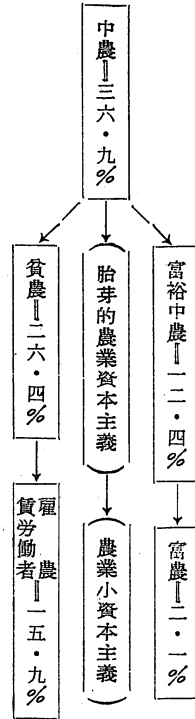 中農＝三六・九%
富裕中農＝一二・四%
富農＝二・一%
(胎芽的農業資本主義)
(農業小資本主義)
貧農＝二六・四%
雇農
賃労働者＝一五・九%